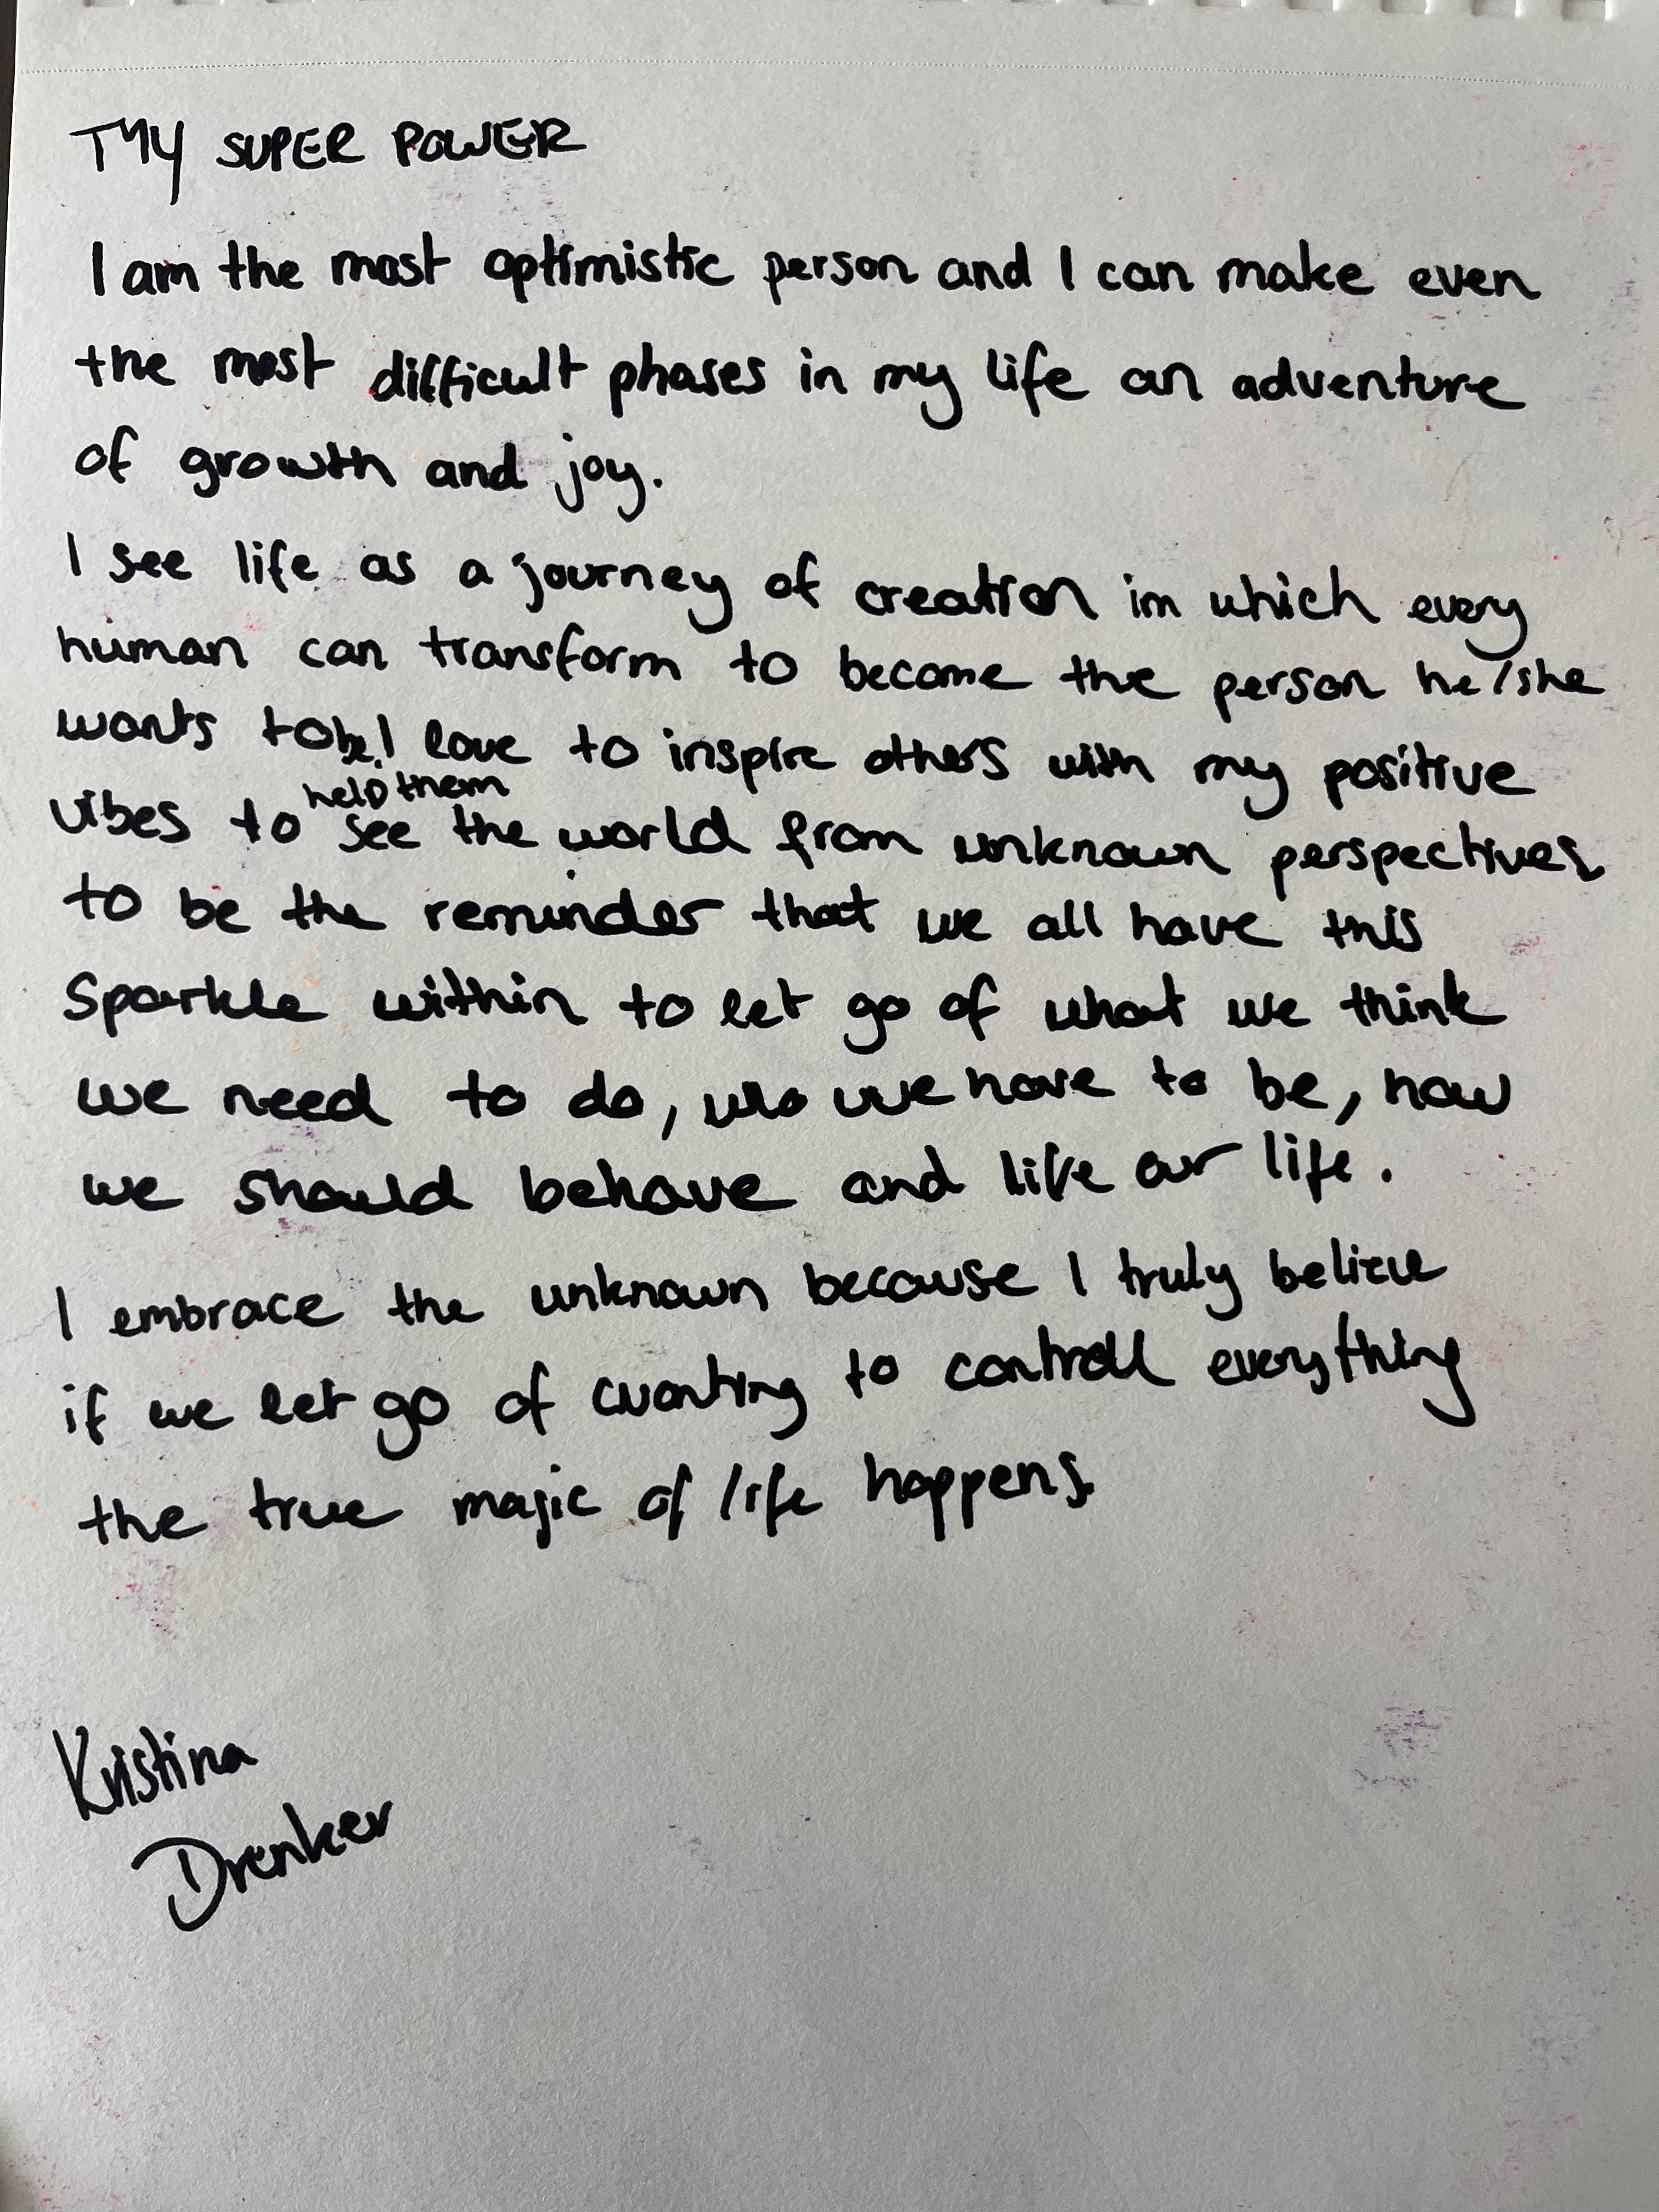 MY SUPER POWER
I am the most optimistic person and I can make even
the most difficult phases in my life an adventure
of growth and joy.
I see life as a journey of creation in which every
human can transform to become the person he/she
wants to be. I love to inspire others with my positive
vibes to help them see the world from unknown perspectives,
to be the reminder that we all have this
sparkle within to let go of what we think
we need to do, who we have to be, how
we should behave and life our life.
I embrace the unknown because I truly believe
if we let go of wanting to controll everything
the true magic of life happens.
Kristina
Drenker